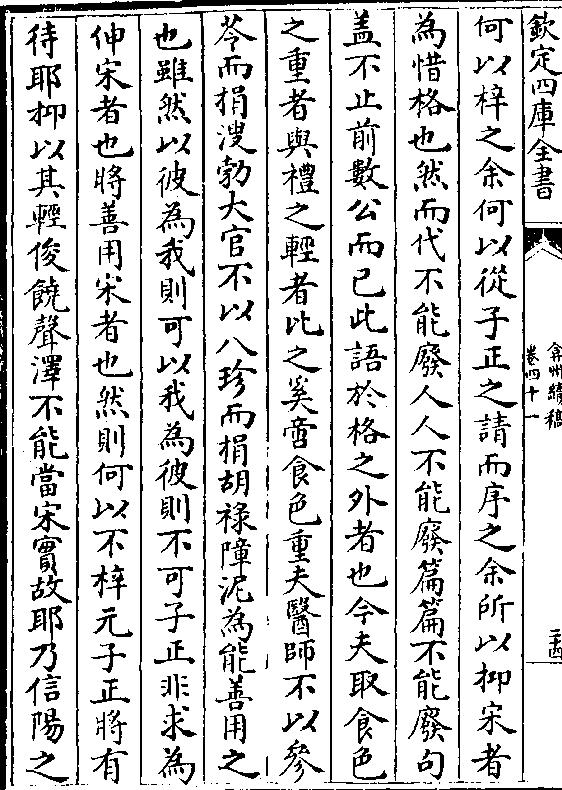 欽定四庫全書
弇州續稿
卷四十一
二十四
何以梓之余何以從子正之請而序之余所以抑宋者
為惜格也然而代不能廢人人不能廢篇篇不能廢句
盖不止前數公而已此語於格之外者也今夫取食色
之重者與禮之輕者比之奚啻食色重夫醫師不以參
苓而捐溲勃大官不以八珍而捐胡禄障泥為能善用之
也雖然以彼為我則可以我為彼則不可子正非求為
伸宋者也將善用宋者也然則何以不梓元子正將有
待耶抑以其輕俊饒聲澤不能當宋實故耶乃信陽之